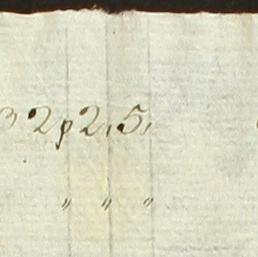 32 p 2, 5,
" " "